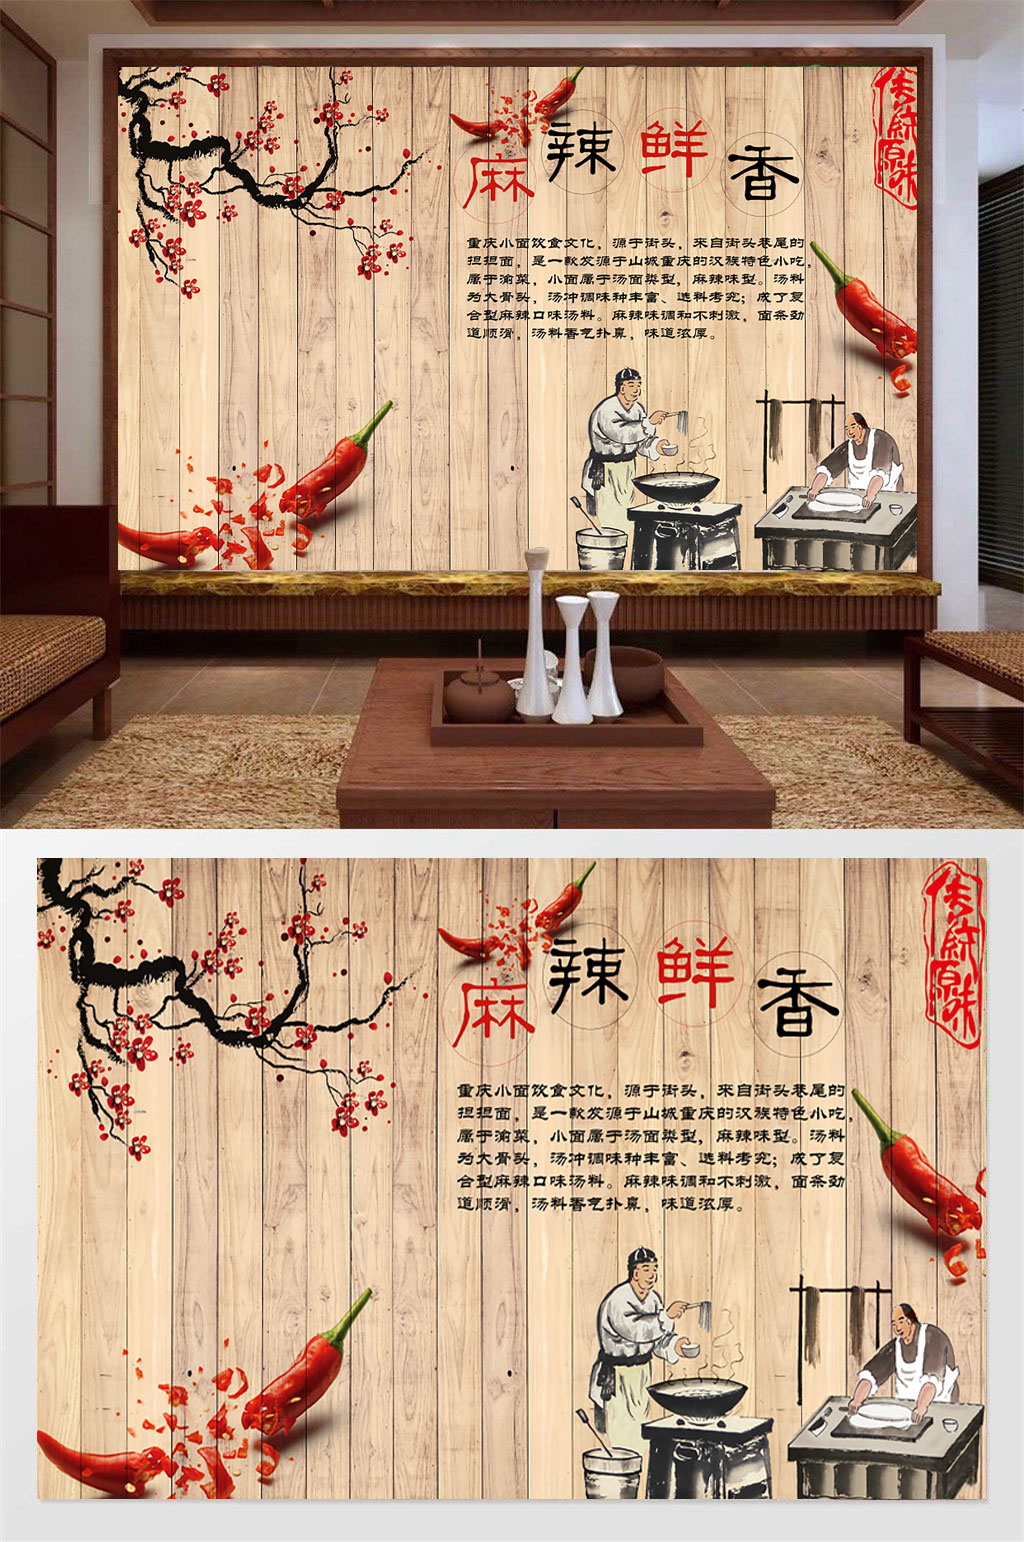 麻辣鲜香
传统原味
重庆小面饮食文化，源于街头，来自街头巷尾的
担担面，是一款发源于山城重庆的汉族特色小吃，
属于渝菜，小面属于汤面类型，麻辣味型。汤料
为大骨头，汤冲调味种丰富、选料考究；成了复
合型麻辣口味汤料。麻辣味调和不刺激，面条劲
道顺滑，汤料香气扑鼻，味道浓厚。
麻辣鲜香
传统原味
重庆小面饮食文化，源于街头，来自街头巷尾的
担担面，是一款发源于山城重庆的汉族特色小吃，
属于渝菜，小面属于汤面类型，麻辣味型。汤料
为大骨头，汤冲调味种丰富、选料考究；成了复
合型麻辣口味汤料。麻辣味调和不刺激，面条劲
道顺滑，汤料香气扑鼻，味道浓厚。